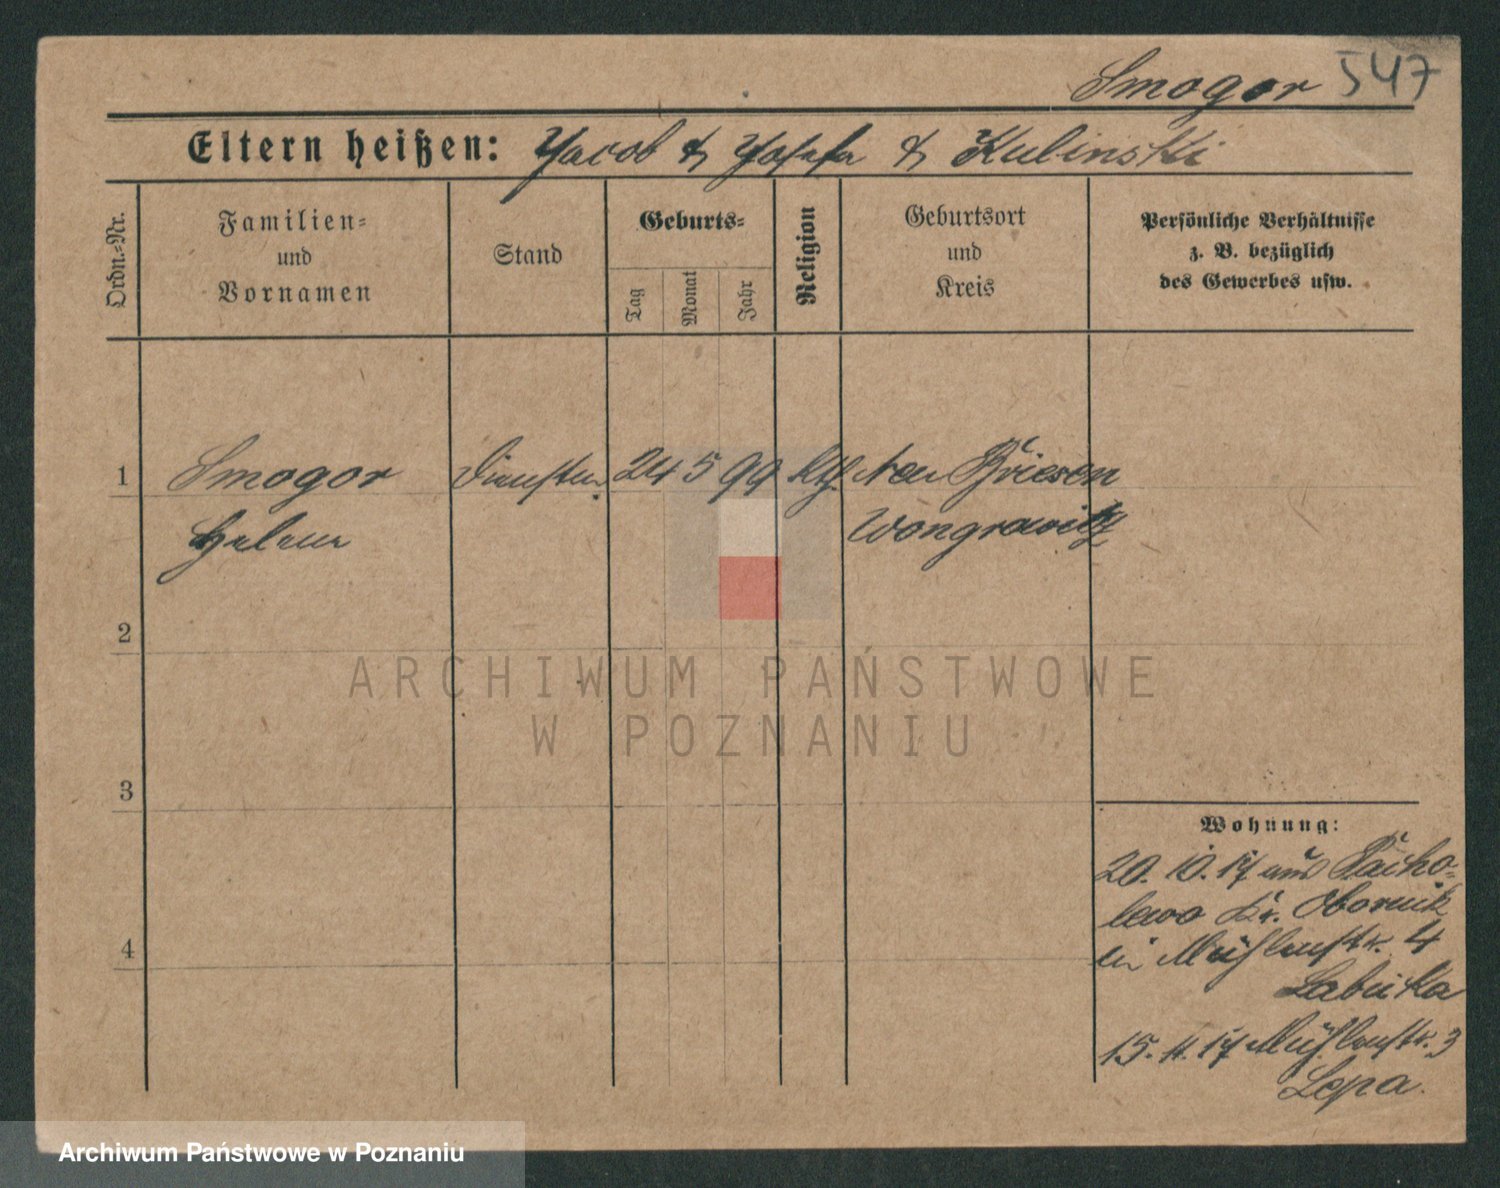 Smogor 547
Eltern heißen: Jacob & Josefa & Kulinski
Ordn.=Nr.
Familien=
und
Vornamen
Stand
Geburts=
Tag
Monat
Jahr
Religion
Geburtsort
und
Kreis
Persönliche Verhältnisse
z. B. bezüglich
des Gewerbes usw.
1 Smogor Dienstm. 24 5 99 kth. Neu Briesen
Helene Wongrowitz
2
3
4
Wohnung:
20. 10. 17 aus Pacho=
lewo Kr. Obornik
in Mühlenstr. 4
Labicka
15. 11. 17 Mühlenstr. 3
Lepa.
ARCHIWUM PAŃSTWOWE
W POZNANIU
Archiwum Państwowe w Poznaniu